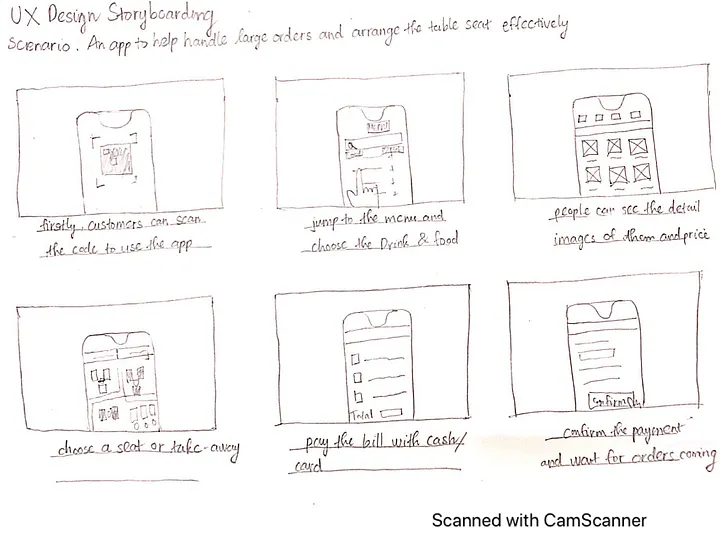 UX Design Storyboarding
Scenario. An app to help handle large orders and arrange the table seat effectively
MENU
firstly, customers can scan
the code to use the app
jump to the menu and
choose the Drink & food
people can see the detail
images of them and price
Total
Confirm
choose a seat or take-away
pay the bill with cash/
card
confirm the payment
and wait for orders coming
Scanned with CamScanner